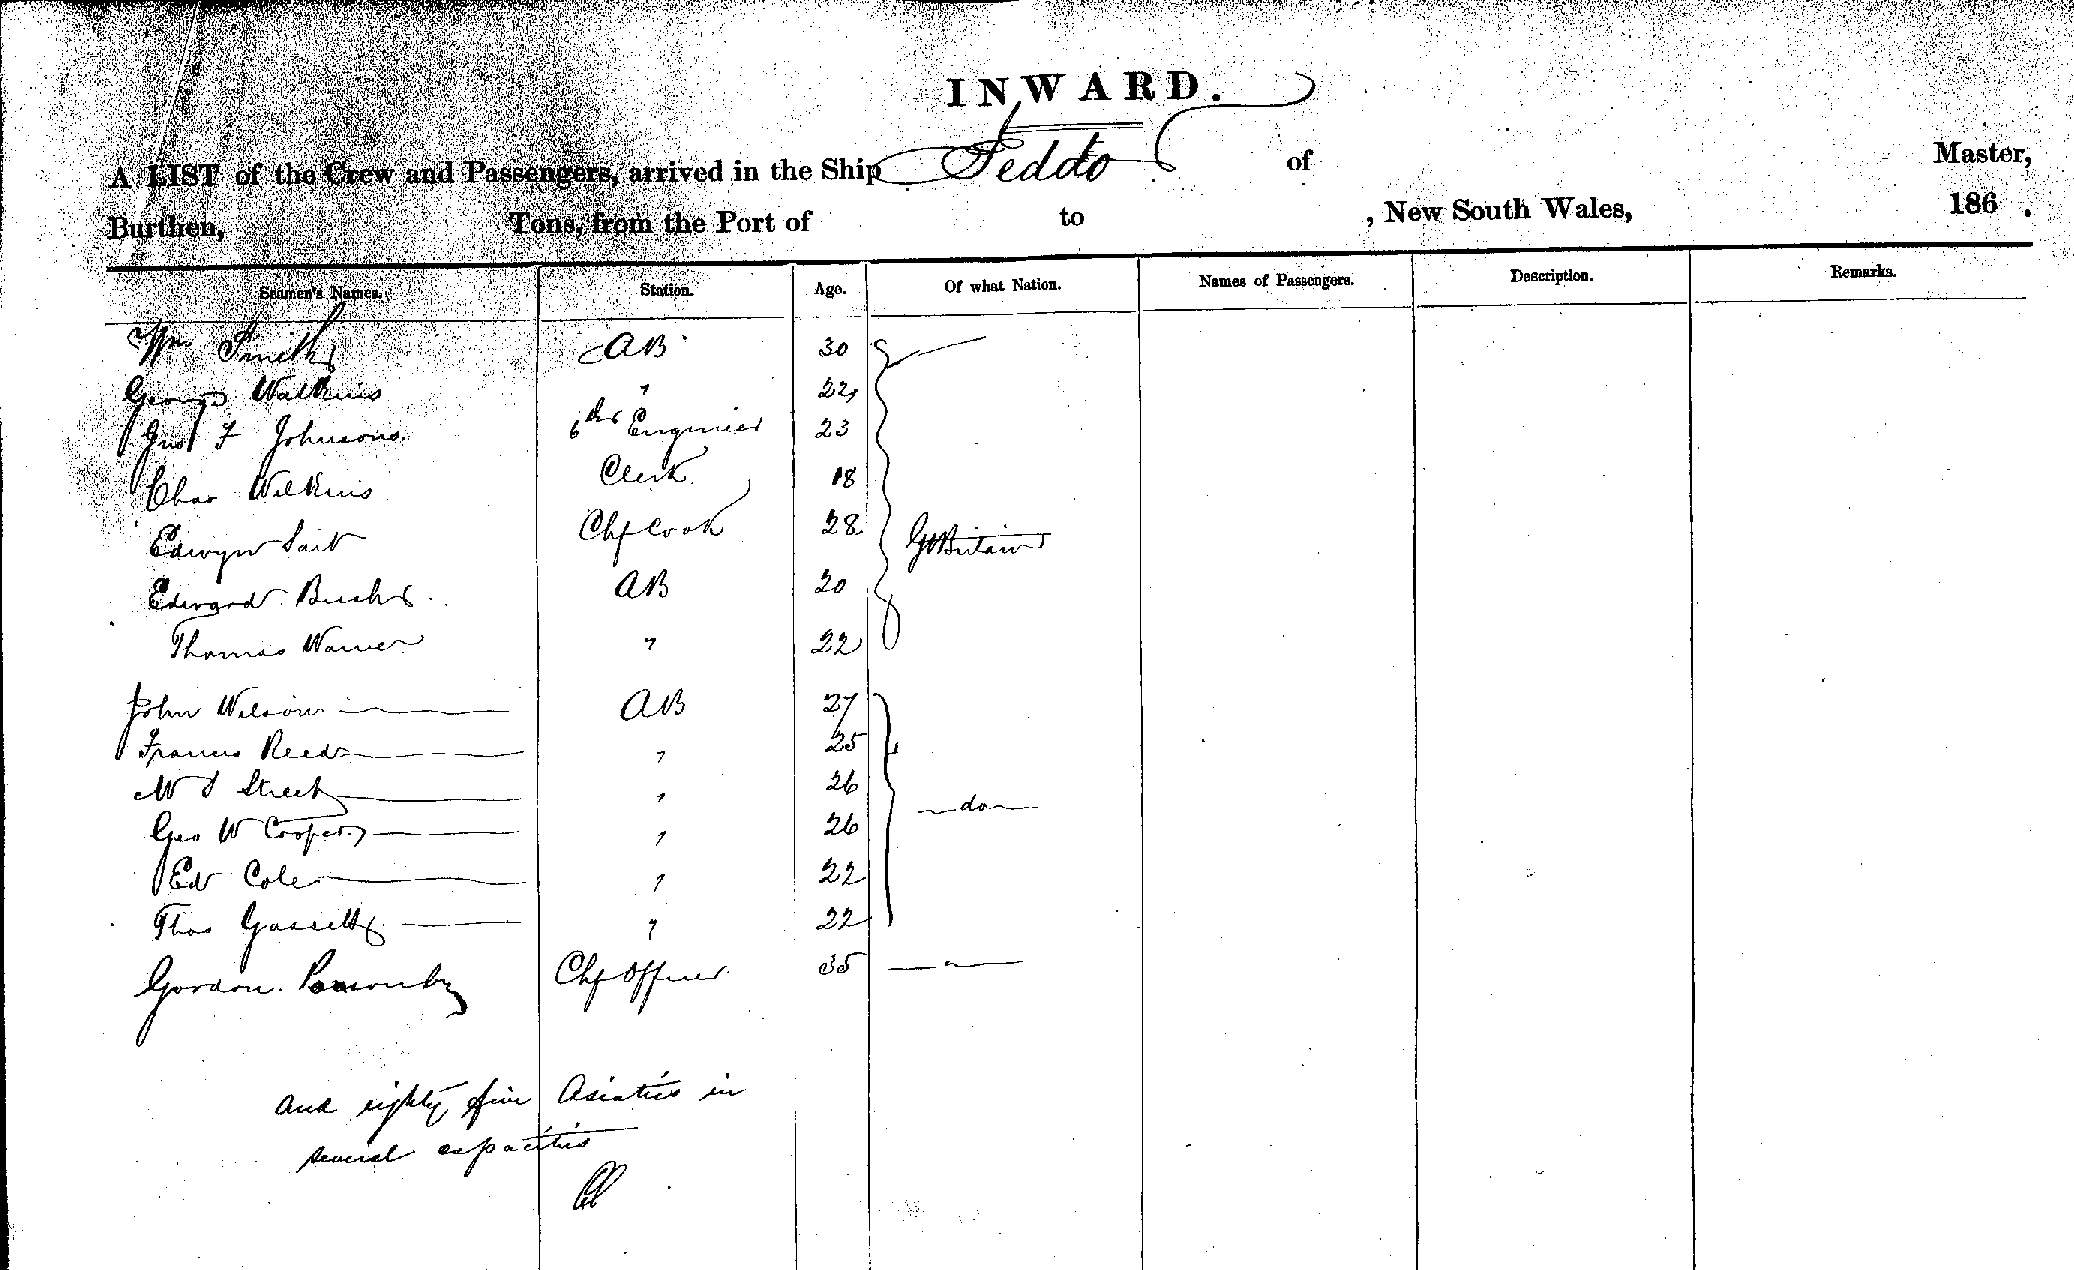 INWARD.
A LIST of the Crew and Passengers, arrived in the Ship Jeddo of Master,
Burthen, Tons, from the Port of to , New South Wales, 186 .
Seamen's Names. Station. Age. Of what Nation. Names of Passengers. Description. Remarks.
Wm Smith AB 30
George Watkins " 22
F Johnsons 6th Engineer 23
Chas Wilkins Clerk 18
Edwyn Chf Cook 28 Gt Britain
Edward Bush AB 20
Thomas Warner " 22
John Wilson AB 27
Francis Reed " 25
W Street " 26 do
Geo W Cooper " 26
Ed Cole " 22
Thos Gassett " 22
Gordon Ponsonby Chf Officer 35 "
and eighty five Asiatics in
several capacities